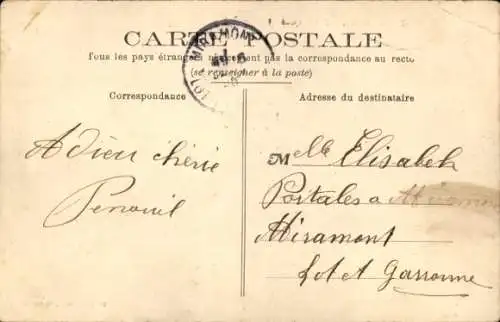 CARTE POSTALE
Tous les pays étrangers n'acceptent pas la correspondance au recto
(se renseigner à la poste)
MIRAMONT
LOT
Correspondance
Adresse du destinataire
Adieu chérie
Melle Elisabeh
Portales a
Miramont
Lot et Garronne